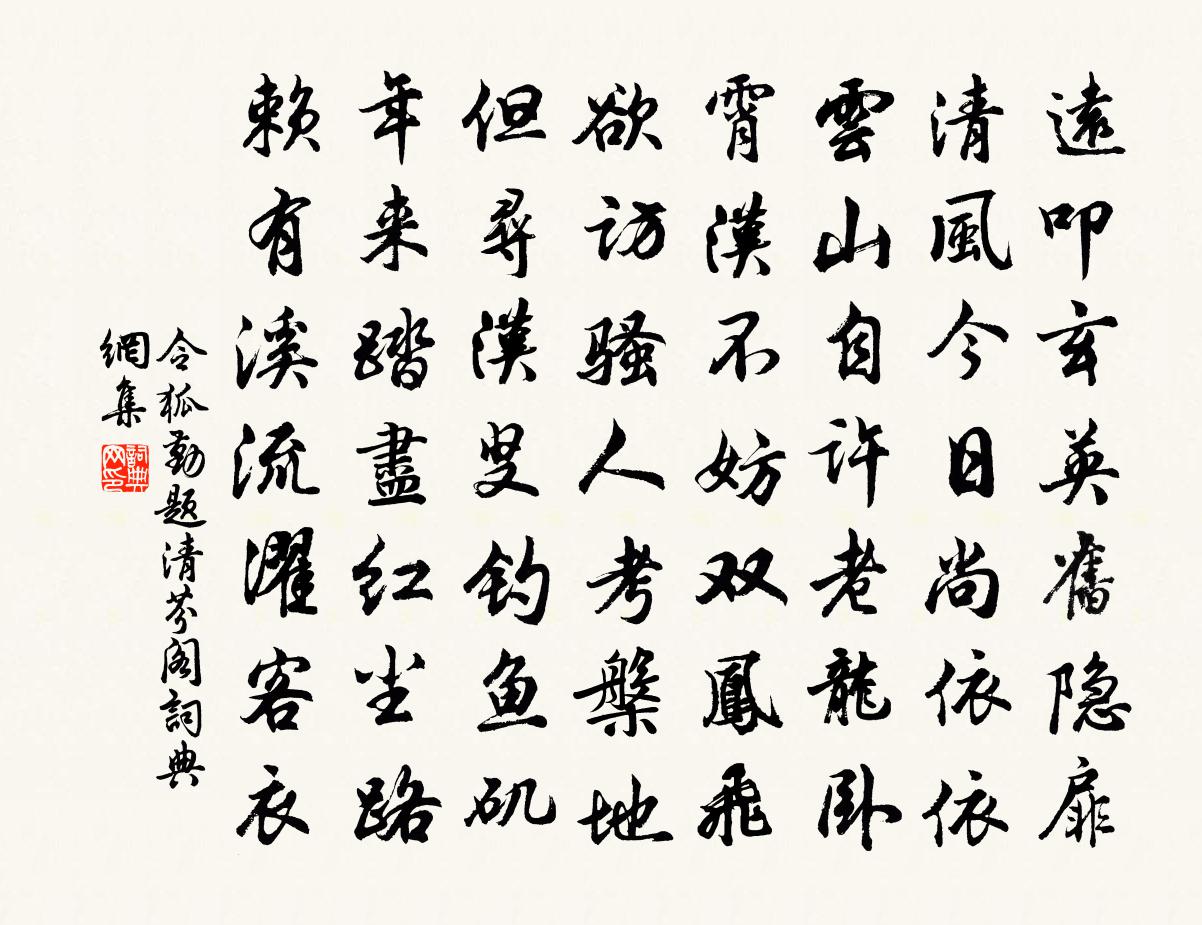 遠叩玄英舊隐扉
清風今日尚依依
雲山自许老龍卧
霄漢不妨双鳳飛
欲访骚人考槃地
但尋漢叟钓鱼矶
年来踏盡红尘路
赖有溪流濯客衣
令狐勤题清芬阁詞典
網集
詞典
网印